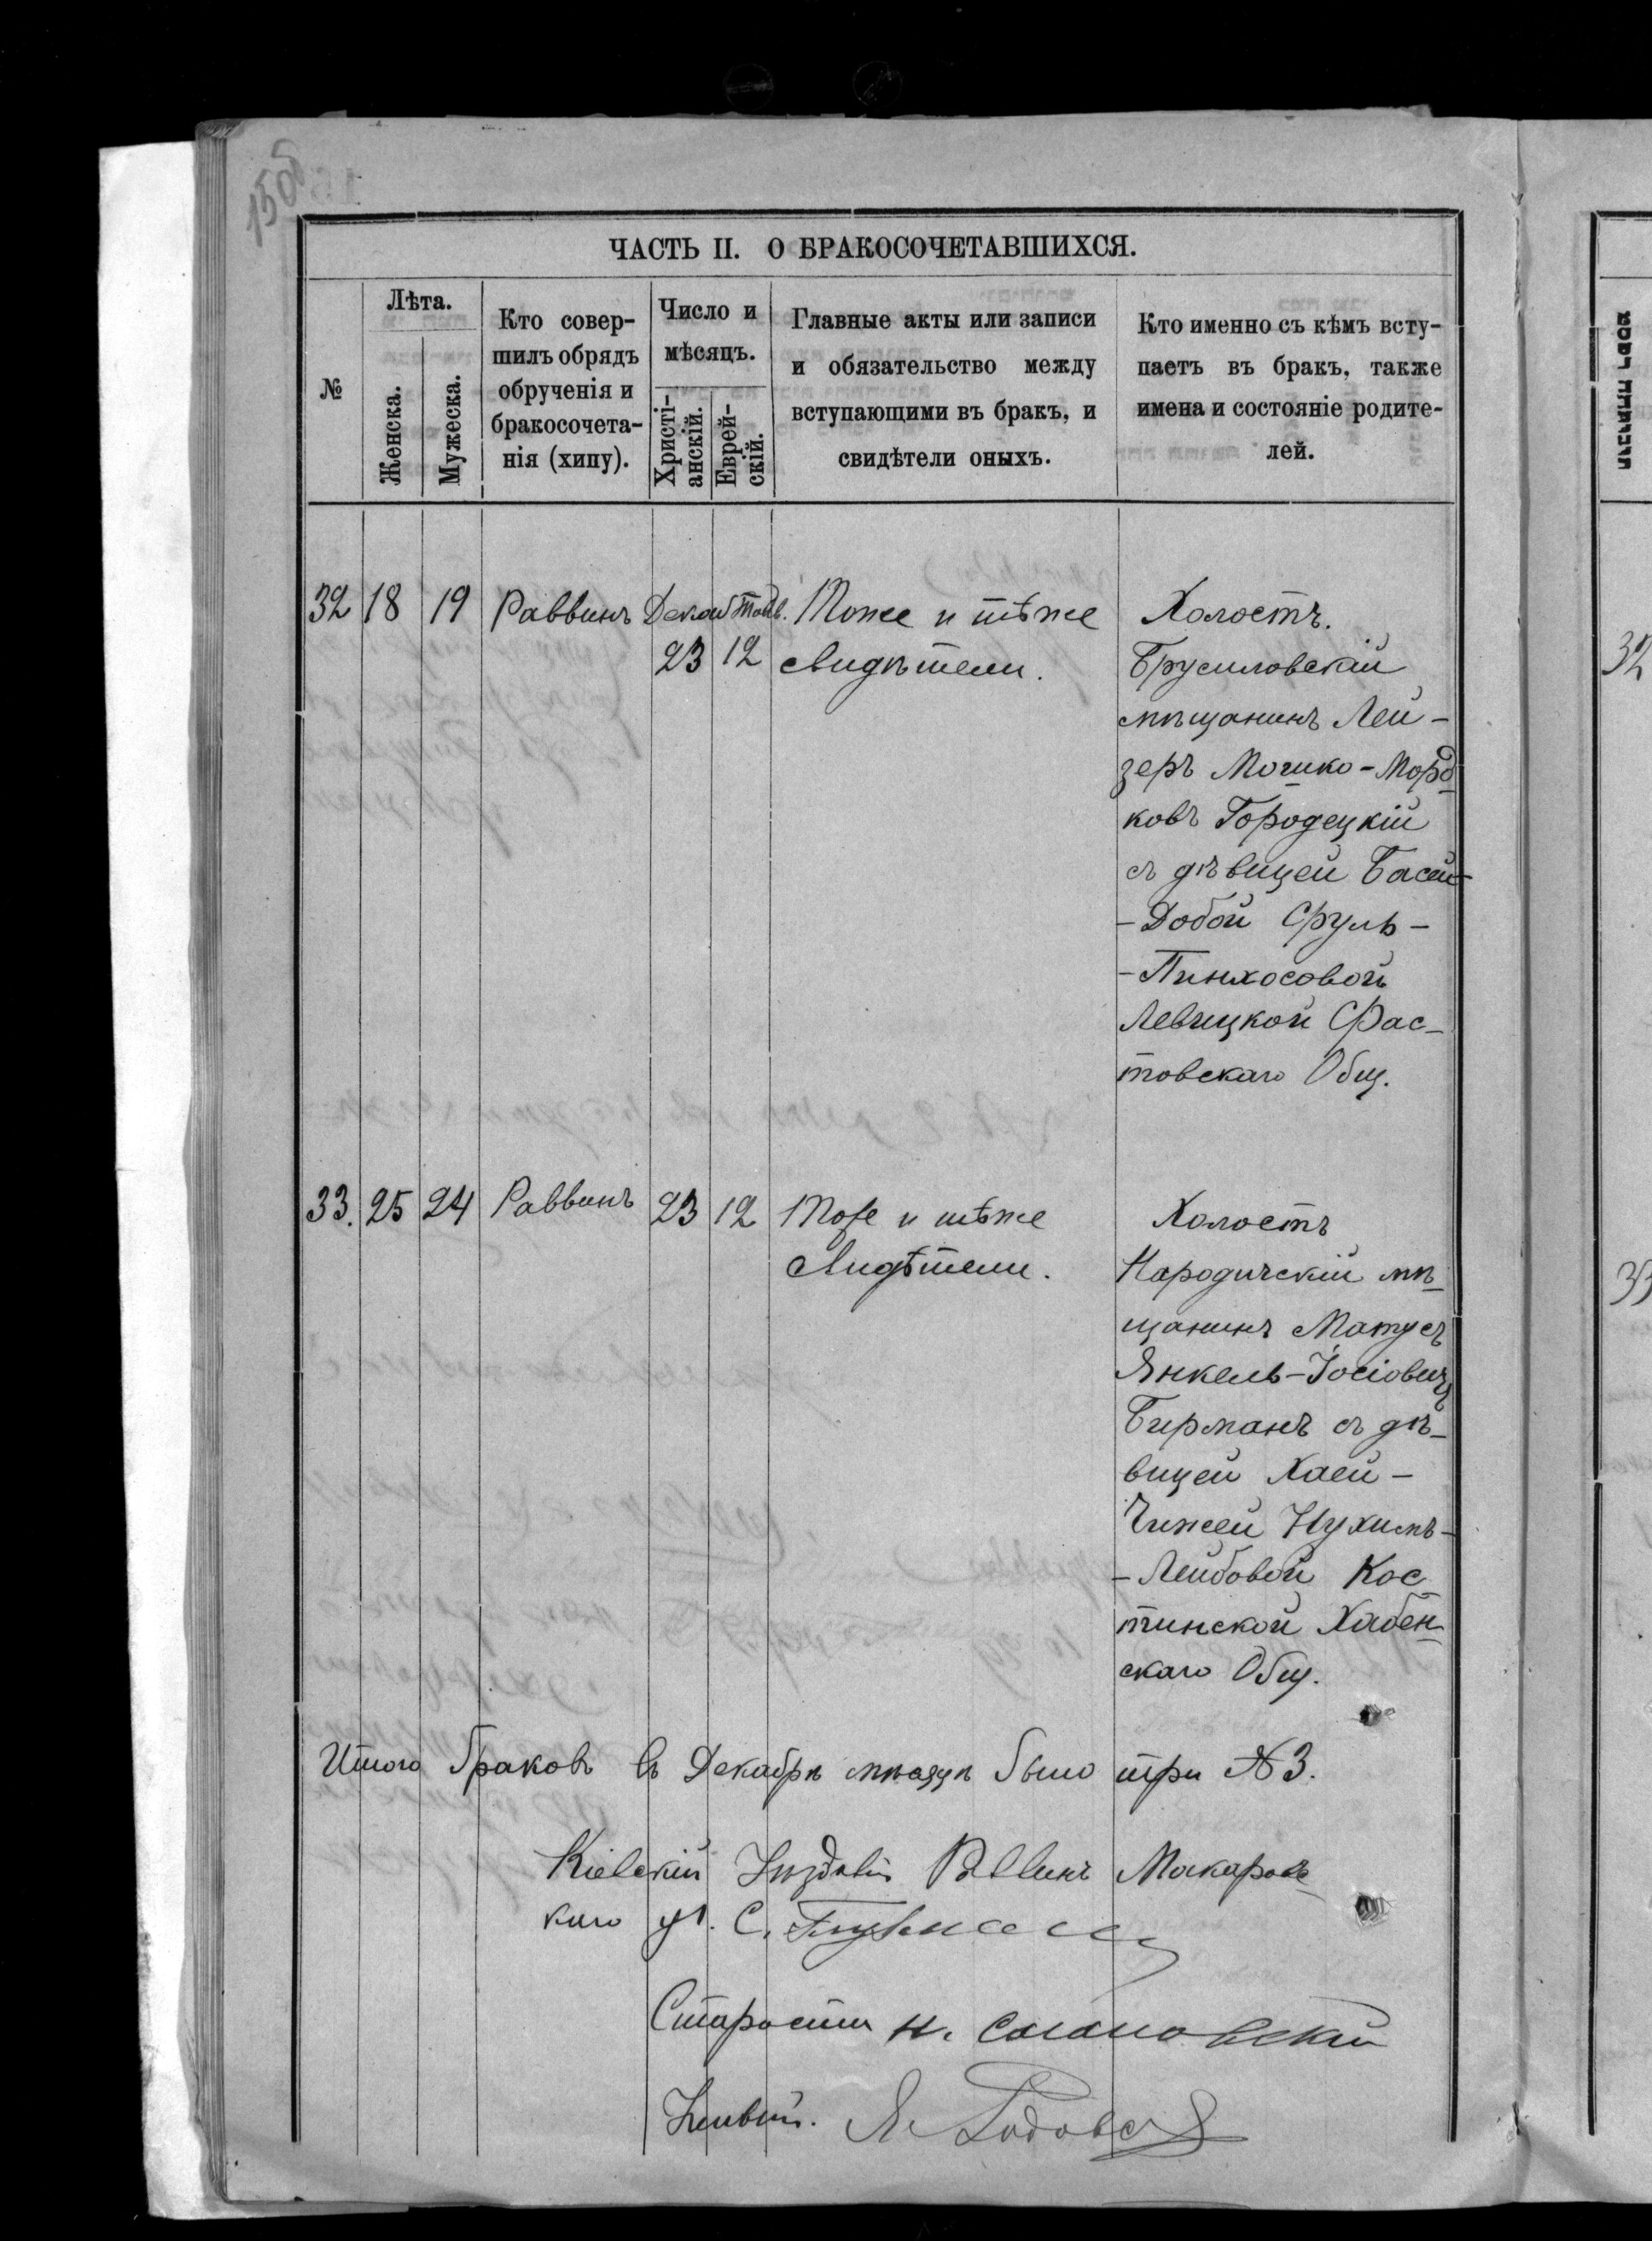 ЧАСТЬ II. О БРАКОСОЧЕТАВШИХСЯ.
№
Лѣта.
Женска.
Мужеска.
Кто совер-
шилъ обрядъ
обрученія и
бракосочета-
нія (хипу).
Число и
мѣсяцъ.
Христі-
анскій.
Еврей-
скій.
Главные акты или записи
и обязательство между
вступающими въ бракъ, и
свидѣтели оныхъ.
Кто именно съ кѣмъ всту-
паетъ въ бракъ, также
имена и состояніе родите-
лей.
32 18 19 Раввинъ Декаб
23 12
Тоже и тѣже
свидѣтели.
Холостъ.
Брусиловскій
мѣщанинъ Лей-
зеръ Мошко-Морд
ковъ Городецкій
съ дѣвицей Басей-
-Добой Сруль-
-Пинхосовой
Левицкой Фас-
товскаго Общ.
33. 25 24 Раввинъ 23 12
Тоже и тѣже
свидѣтели.
Холостъ
Народичскій мѣ
щанинъ Матусъ
Янкель-Іосіовичъ
Бирманъ съ дѣ-
вицей Хаей-
Нухимъ-
-Лейбовой Кос
тинской Хабен
скаго Общ.
Итого браковъ въ Декабрѣ мѣсяцѣ было три №3.
Кіевскій Уѣздный Раввинъ Макаровс
каго уч. С.
Староста Н.
32
33